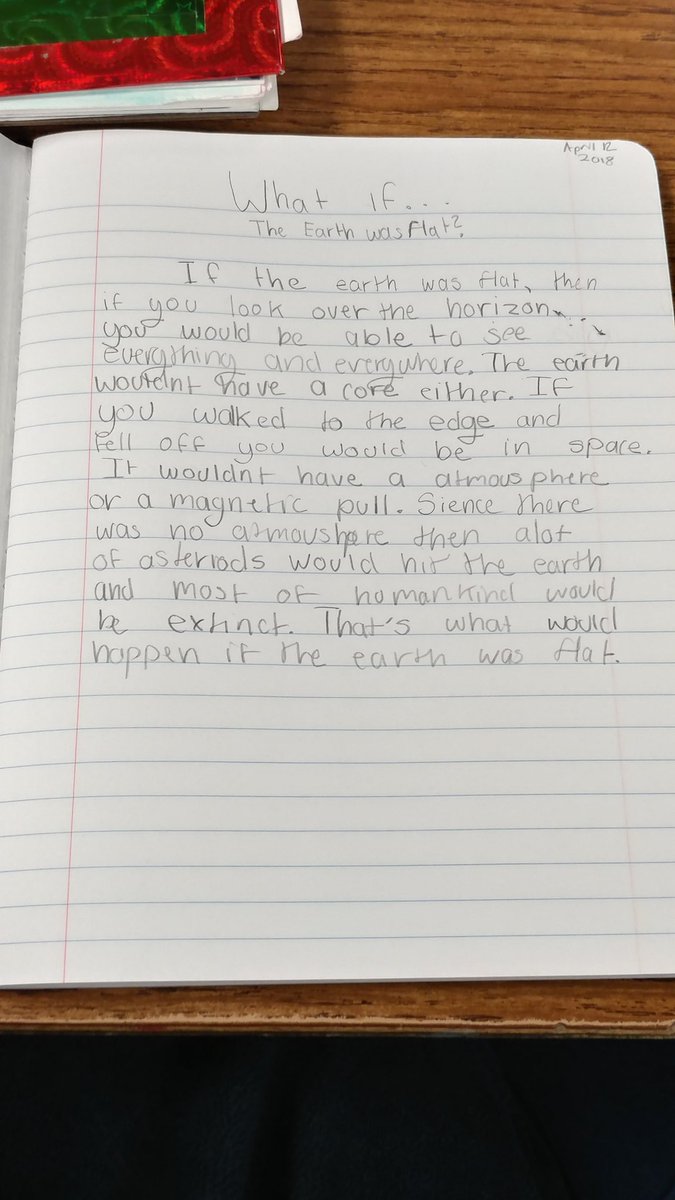 April 12
2018
What if...
The Earth was flat?
If the earth was flat, then
if you look over the horizon
you would be able to see
everything and everywhere. The earth
wouldnt have a core either. If
you walked to the edge and
fell off you would be in space.
It wouldnt have a atmousphere
or a magnetic pull. Sience there
was no atmoushpere then alot
of asteriods would hit the earth
and most of homankind would
be extinct. That's what would
happen if the earth was flat.